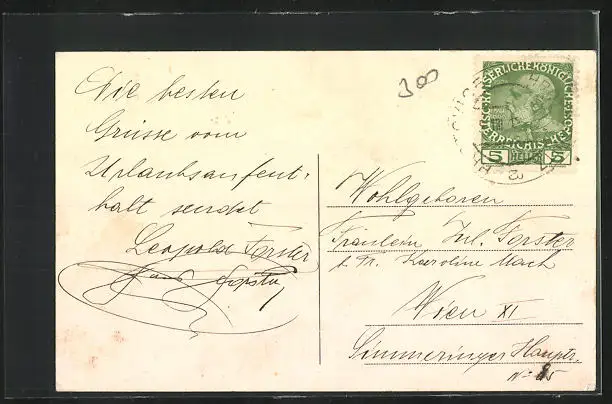 300
Die besten
Grüsse vom
Urlaubsaufent-
halt sendet
Leopold Forster
Hans Forster
KAISERLICHE KÖNIGLICHE
ÖSTERREICHISCHE POST
5 HELLER 5
Wohlgeboren
Fräulein Jul. Forster
b. Fr. Karoline Mach
Wien XI
Simmeringer Hauptr.